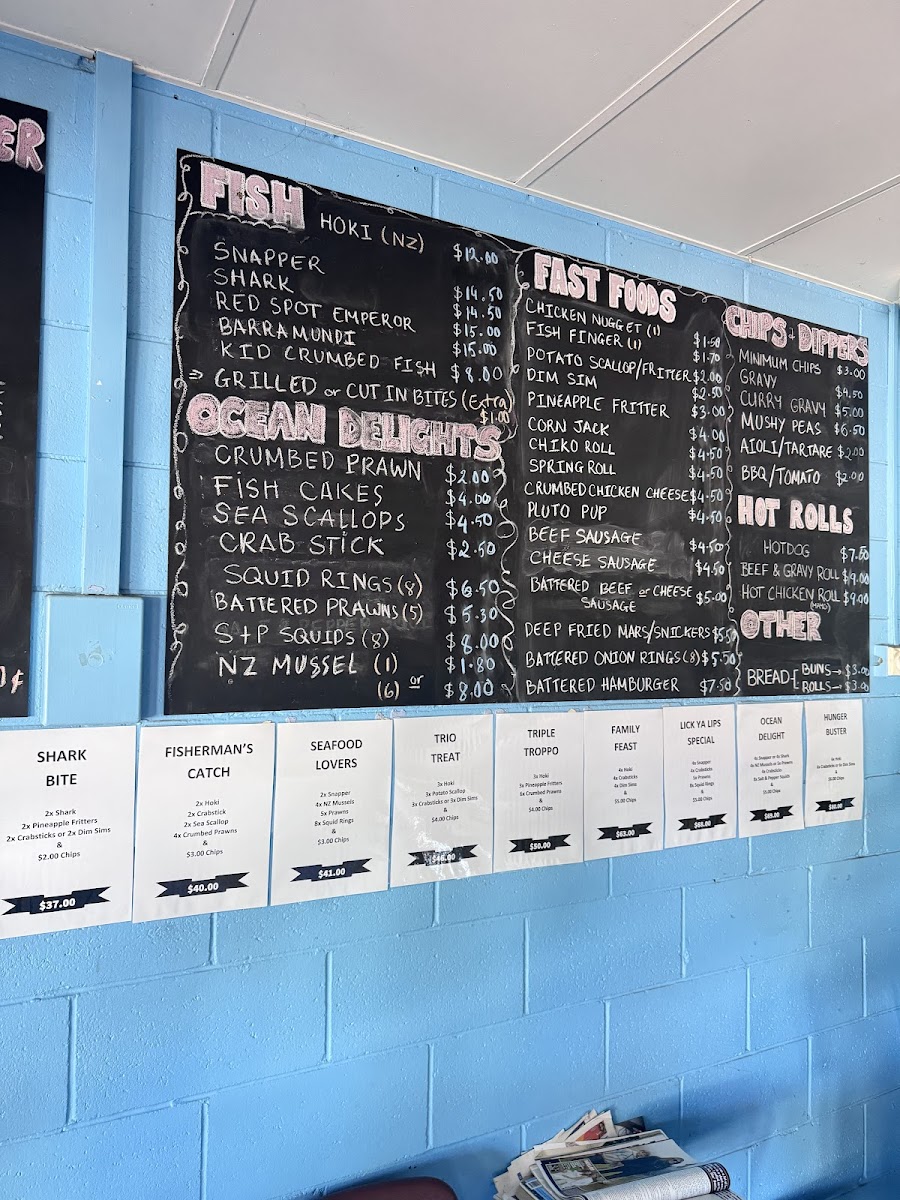 ER
FISH
HOKI (NZ) $12.00
SNAPPER $14.50
SHARK $14.50
RED SPOT EMPEROR $15.00
BARRAMUNDI $15.00
KID CRUMBED FISH $8.00
⇒ GRILLED or CUT IN BITES (Extra) $1.00
OCEAN DELIGHTS
CRUMBED PRAWN $2.00
FISH CAKES $4.00
SEA SCALLOPS $4.50
CRAB STICK $2.50
SQUID RINGS (8) $6.50
BATTERED PRAWNS (5) $5.30
S+P SQUIDS (8) $8.00
NZ MUSSEL (1) $1.80
(6) or $8.00
FAST FOODS
CHICKEN NUGGET (1) $1.50
FISH FINGER (1) $1.70
POTATO SCALLOP/FRITTER $2.00
DIM SIM $2.50
PINEAPPLE FRITTER $3.00
CORN JACK $4.00
CHIKO ROLL $4.50
SPRING ROLL $4.50
CRUMBED CHICKEN CHEESE $4.50
PLUTO PUP $4.50
BEEF SAUSAGE $4.50
CHEESE SAUSAGE $4.50
BATTERED BEEF or CHEESE
SAUSAGE $5.00
DEEP FRIED MARS/SNICKERS $5.50
BATTERED ONION RINGS (8) $5.50
BATTERED HAMBURGER $7.50
CHIPS + DIPPERS
MINIMUM CHIPS $3.00
GRAVY $4.50
CURRY GRAVY $5.00
MUSHY PEAS $6.50
AIOLI/TARTARE $2.00
BBQ/TOMATO $2.00
HOT ROLLS
HOTDOG $7.50
BEEF & GRAVY ROLL $9.00
HOT CHICKEN ROLL $9.00
(MAYO)
OTHER
BREAD-[ BUNS→ $3.00
ROLLS→ $3.00
SHARK
BITE
2x Shark
2x Pineapple Fritters
2x Crabsticks or 2x Dim Sims
&
$2.00 Chips
$37.00
FISHERMAN'S
CATCH
2x Hoki
2x Crabstick
2x Sea Scallop
4x Crumbed Prawns
&
$3.00 Chips
$40.00
SEAFOOD
LOVERS
2x Snapper
4x NZ Mussels
5x Prawns
8x Squid Rings
&
$3.00 Chips
$41.00
TRIO
TREAT
3x Hoki
3x Potato Scallop
3x Crabsticks or 3x Dim Sims
&
$4.00 Chips
TRIPLE
TROPPO
3x Hoki
3x Pineapple Fritters
3x Crumbed Prawns
&
$4.00 Chips
$50.00
FAMILY
FEAST
4x Hoki
4x Crabsticks
4x Dim Sims
&
$5.00 Chips
$63.00
LICK YA LIPS
SPECIAL
4x Snapper
4x Crabsticks
5x Prawns
8x Squid Rings
&
$5.00 Chips
$68.00
OCEAN
DELIGHT
4x Snapper or 4x Shark
4x NZ Mussels or 5x Prawns
4x Crabsticks
4x Salt & Pepper Squids
&
$5.00 Chips
$69.00
HUNGER
BUSTER
Hoki
Crabsticks or Dim Sims
&
Chips